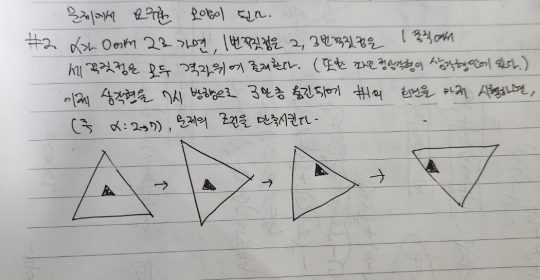 문제에서 요구한 모양이 된다.
#2 α가 0에서 2로 가면, 1번꼭짓점은 2, 3번꼭짓점은 1 움직여서
세 꼭짓점은 모두 격자위에 존재한다. (또한 작은 정삼각형이 삼각형안에 있다.)
이제 삼각형을 시 방향으로 3만큼 움직인뒤에 #1의 을 아래 시행하면,
(즉 α: 2→), 문제의 조건을 만족시킨다.